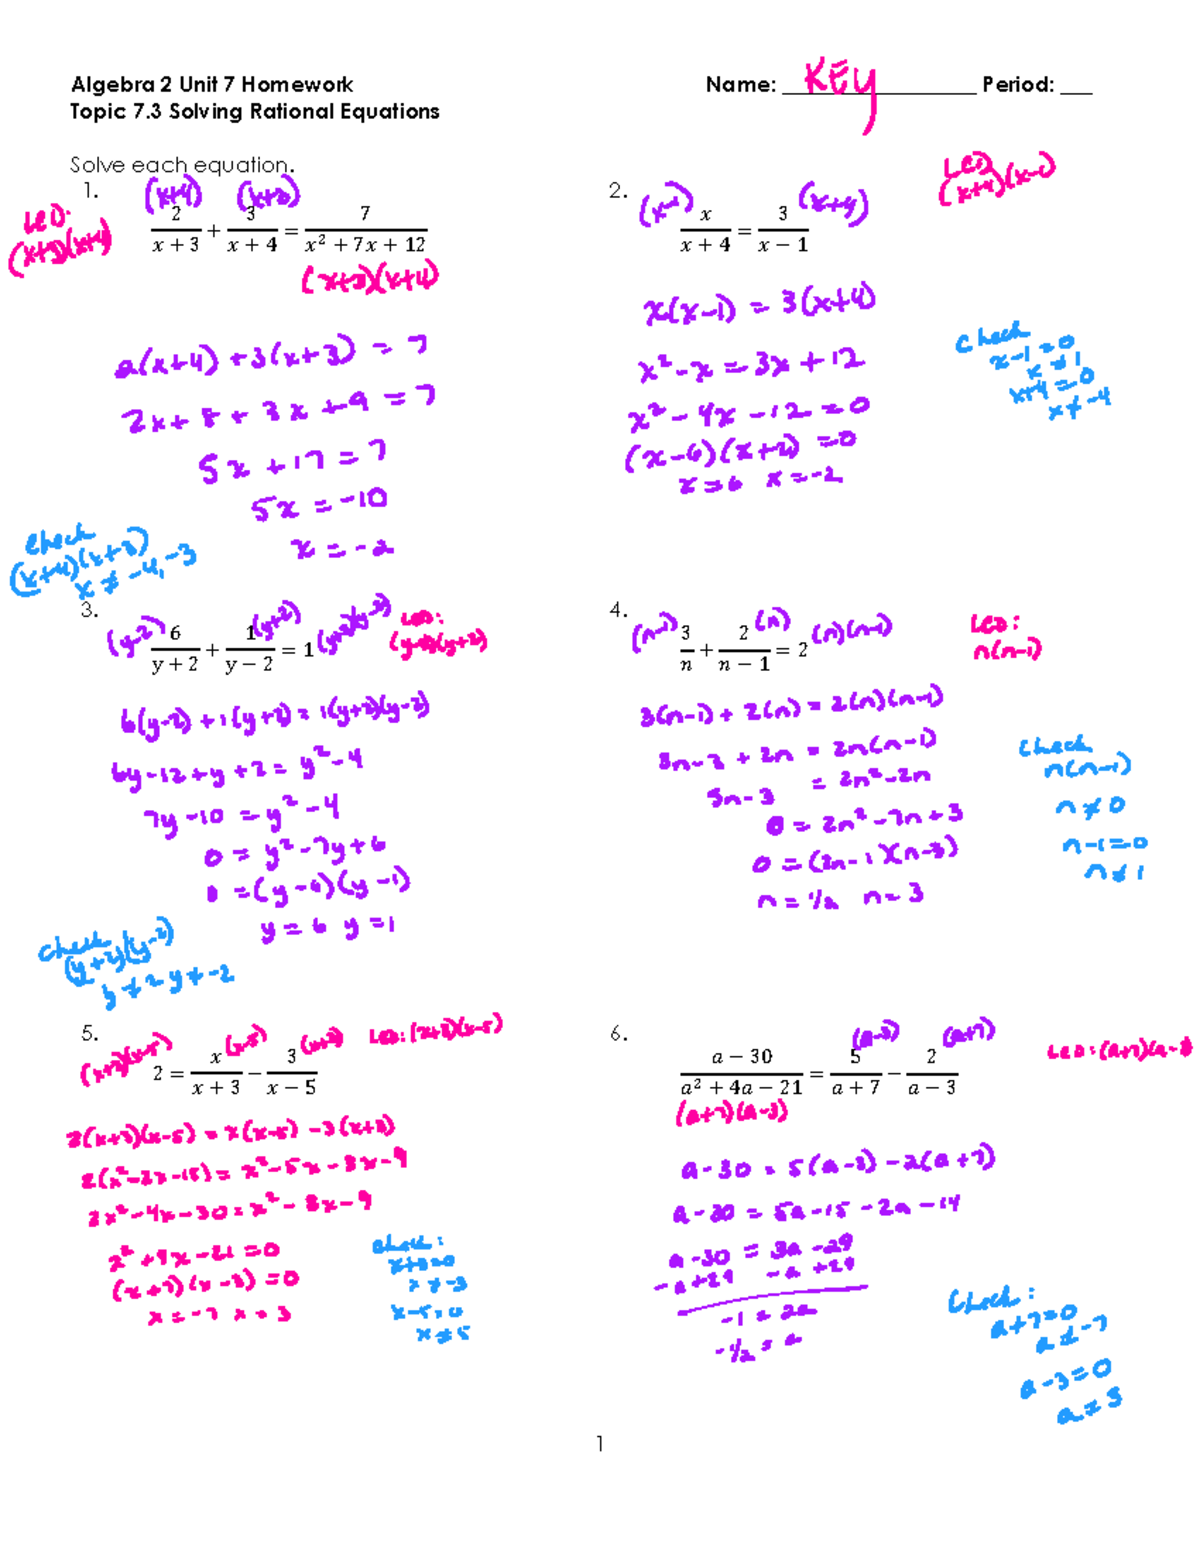 Algebra 2 Unit 7 Homework
Name: KEY Period: ___
Topic 7.3 Solving Rational Equations
Solve each equation.
1.
LCD:
(x+3)(x+4)
(x+4) (x+3)
2/(x + 3) + 3/(x + 4) = 7/(x² + 7x + 12)
(x+3)(x+4)
2(x+4) +3(x+3) = 7
2x+8+3x+9 = 7
5x+17=7
5x = -10
x = -2
Check
(x+4)(x+3)
x ≠ -4, -3
2.
LCD
(x+4)(x-1)
(x-1) (x+4)
x/(x + 4) = 3/(x − 1)
x(x-1) = 3(x+4)
x²-x = 3x+12
x²-4x-12=0
(x-6)(x+2)=0
x=6 x=-2
Check
x-1=0
x≠1
x+4=0
x≠-4
3.
(y-2) (y+2) (y+2)(y-2)
6/(y + 2) + 1/(y − 2) = 1
LCD:
(y-2)(y+2)
6(y-2)+1(y+2)=1(y+2)(y-2)
6y-12+y+2= y²-4
7y-10 = y²-4
0 = y²-7y+6
0 =(y-6)(y-1)
y=6 y=1
Check
(y+2)(y-2)
y≠2 y≠-2
4.
(n-1) (n) (n)(n-1)
3/n + 2/(n − 1) = 2
LCD:
n(n-1)
3(n-1)+2(n)=2(n)(n-1)
3n-3+2n = 2n(n-1)
5n-3 = 2n²-2n
0 = 2n²-7n+3
0 =(2n-1)(n-3)
n=1/2 n=3
Check
n(n-1)
n≠0
n-1=0
n≠1
5.
(x+3)(x-5) (x-5) (x+3)
2 = x/(x + 3) − 3/(x − 5)
LCD: (x+3)(x-5)
2(x+3)(x-5) = x(x-5) -3(x+3)
2(x²-2x-15)= x²-5x-3x-9
2x²-4x-30=x²-8x-9
x²+4x-21=0
(x+7)(x-3)=0
x=-7 x=3
Check:
x+3=0
x≠-3
x-5=0
x≠5
6.
(a-3) (a+7)
(a − 30)/(a² + 4a − 21) = 5/(a + 7) − 2/(a − 3)
(a+7)(a-3)
LCD: (a+7)(a-3
a-30 = 5(a-3) -2(a+7)
a-30 = 5a-15-2a-14
a-30 = 3a-29
-a+29 -a+29
-1 = 2a
-1/2 = a
Check:
a+7=0
a≠-7
a-3=0
a≠3
1